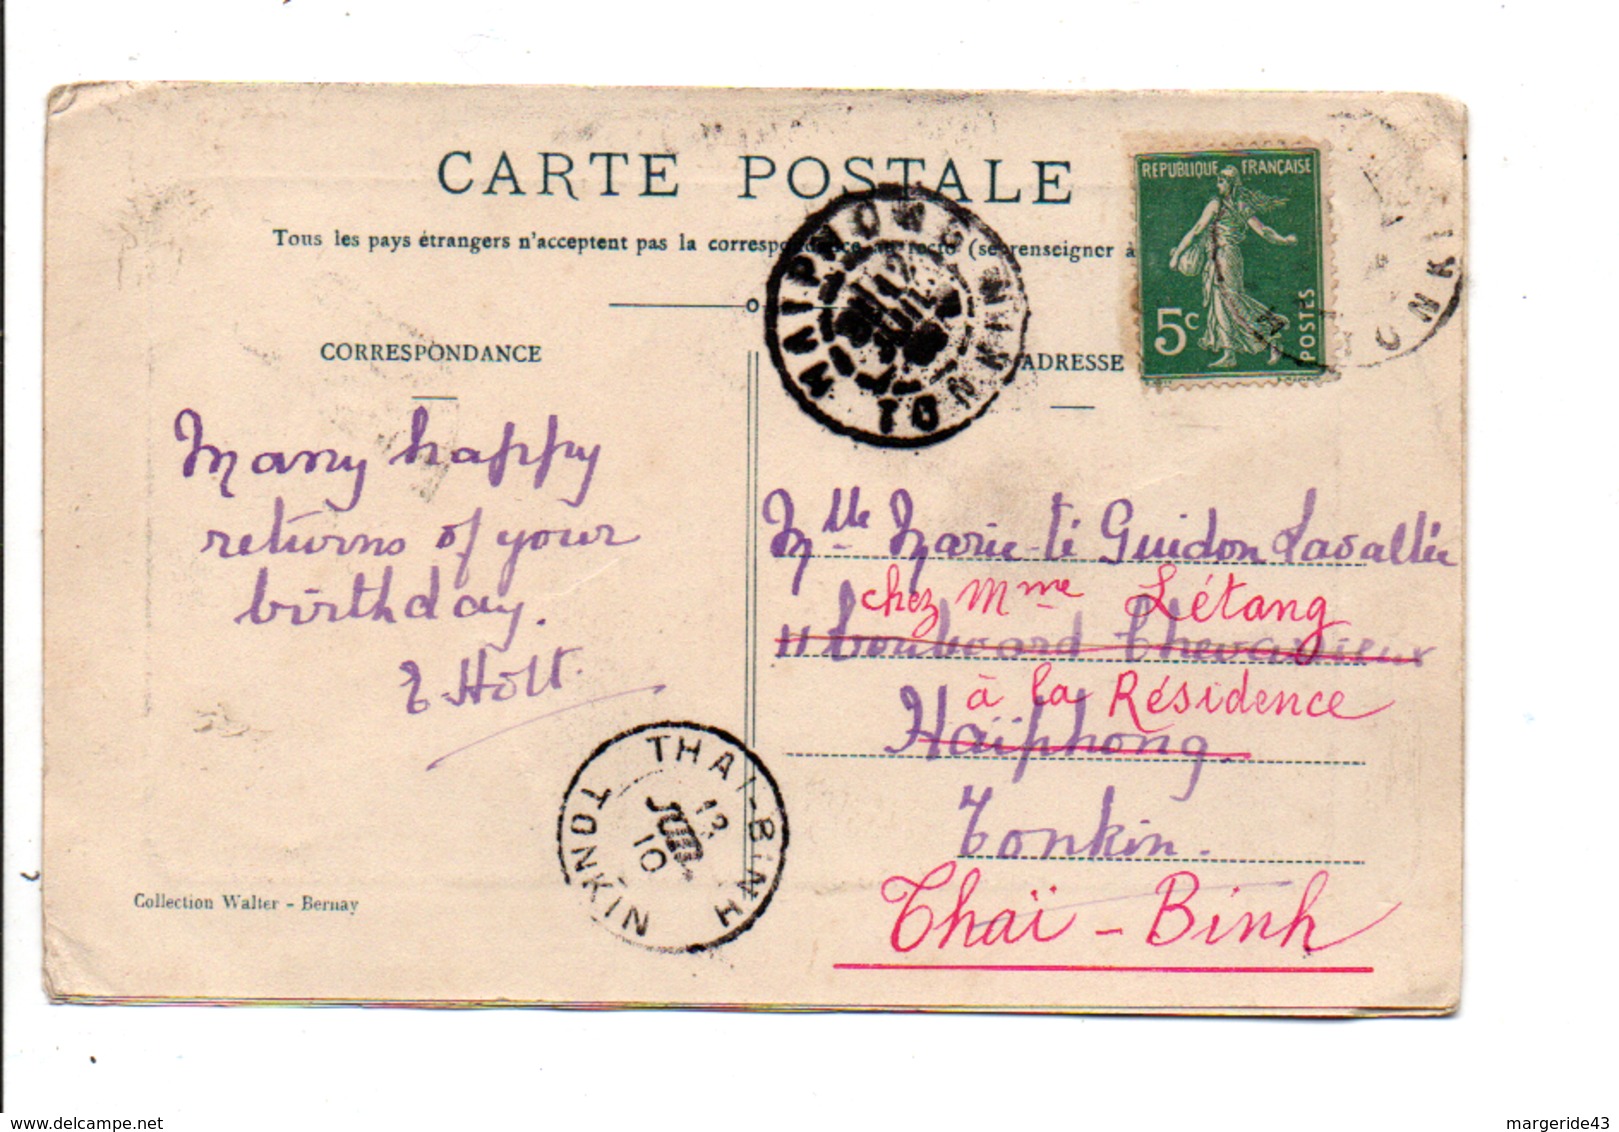 CARTE POSTALE
Tous les pays étrangers n'acceptent pas la correspondance au recto (se renseigner à
REPUBLIQUE FRANÇAISE
5c
POSTES
CORRESPONDANCE
ADRESSE
Many happy
returns of your
birthday.
E Holt.
Mlle Marie-té Guidon Lavallée
chez Mme Létang
11 boulevard
à la Résidence
Haïphong.
Tonkin.
Thaï-Binh
THAI-BINH
12
JUIL
10
TONKIN
HAIPHONG
Collection Walter - Bernay
www.delcampe.net
margeride43